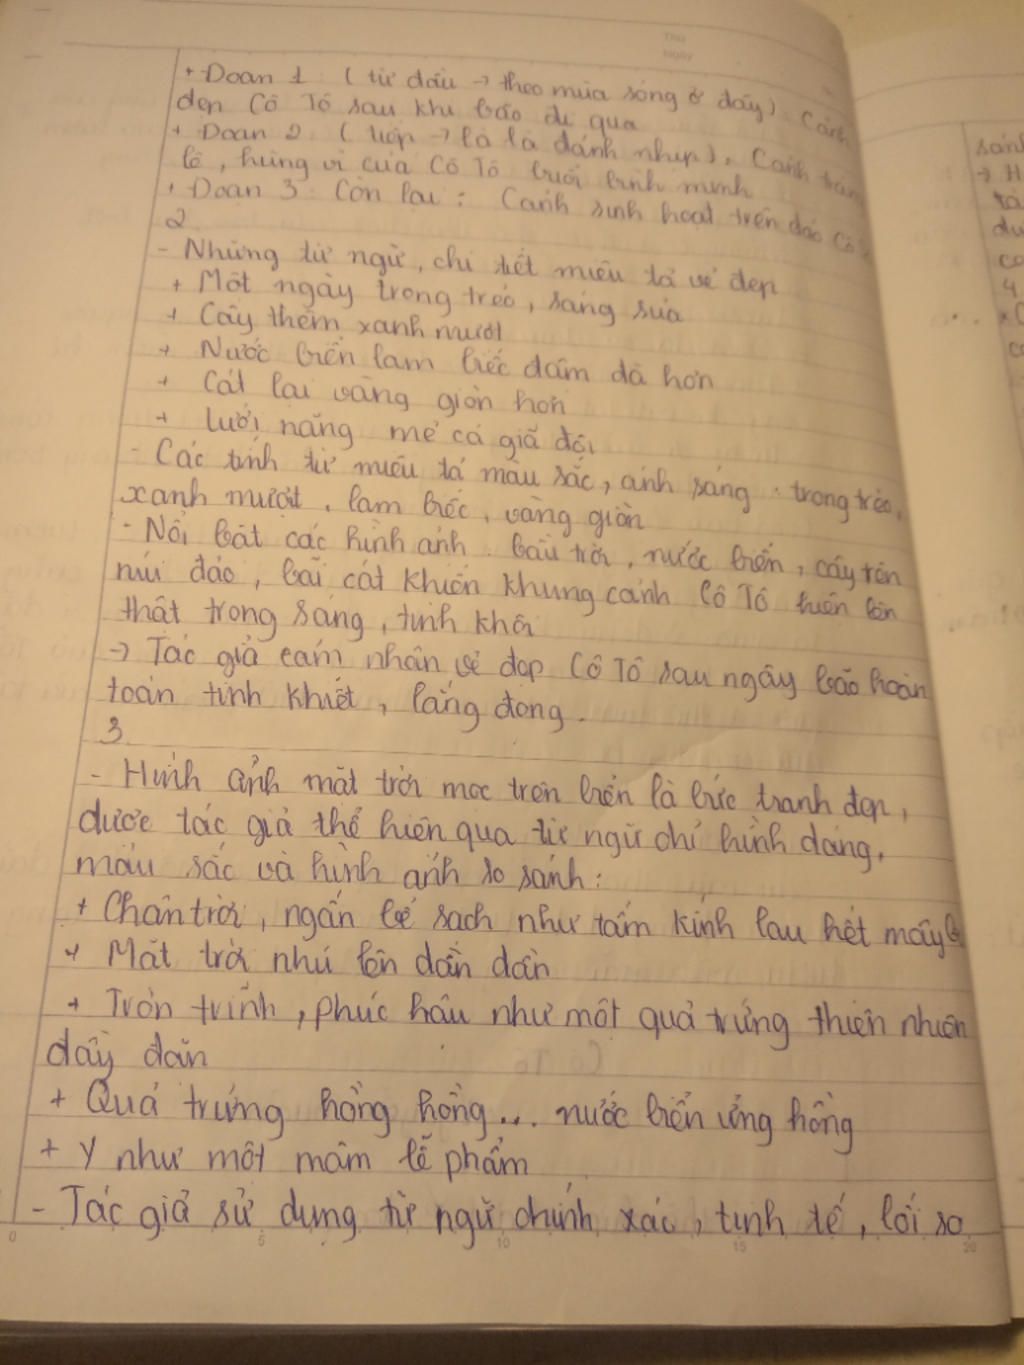 Thứ
Ngày
+ Đoạn 1 : ( từ đầu → theo mùa sóng ở đây) Cảnh
đẹp Cô Tô sau khi bão đi qua
+ Đoạn 2 : ( tiếp → là là đánh nhịp), Cảnh tráng
lệ, hùng vĩ của Cô Tô buổi bình minh
+ Đoạn 3 : Còn lại : Cảnh sinh hoạt trên đảo Cô
2
- Những từ ngữ, chi tiết miêu tả vẻ đẹp
+ Một ngày trong trẻo, sáng sủa
+ Cây thêm xanh mượt
+ Nước biển lam biếc đậm đà hơn
+ Cát lại vàng giòn hơn
+ Lưới nặng mẻ cá giã đôi
- Các tính từ miêu tả màu sắc, ánh sáng : trong trẻo,
xanh mượt, lam biếc, vàng giòn
- Nổi bật các hình ảnh : bầu trời, nước biển, cây trên
núi đảo, bãi cát khiến khung cảnh Cô Tô hiện lên
thật trong sáng, tinh khôi
→ Tác giả cảm nhận vẻ đẹp Cô Tô sau ngày bão hoàn
toàn tinh khiết, lắng đọng.
3
- Hình ảnh mặt trời mọc trên biển là bức tranh đẹp,
được tác giả thể hiện qua từ ngữ chỉ hình dáng,
màu sắc và hình ảnh so sánh :
+ Chân trời, ngấn bể sạch như tấm kính lau hết mây
+ Mặt trời nhú lên dần dần
+ Tròn trĩnh, phúc hậu như một quả trứng thiên nhiên
đầy đặn
+ Quả trứng hồng hồng... nước biển ửng hồng
+ Y như một mâm lễ phẩm
- Tác giả sử dụng từ ngữ chính xác, tinh tế, lối so
0 5 10 15 20
sánh
→ H
tà
du
co
4